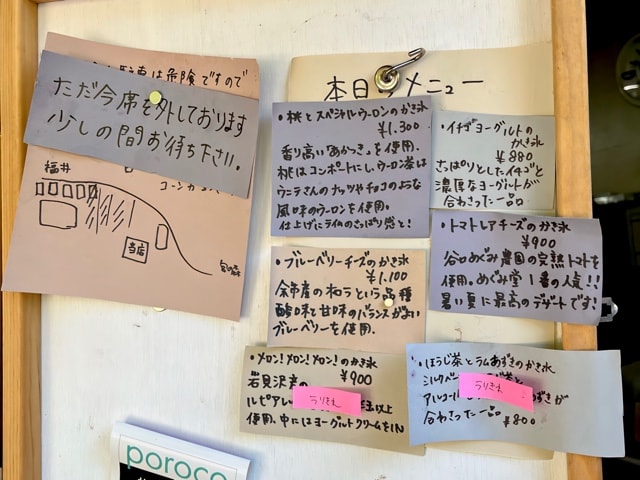 は危険ですので
ただ今席を外しております
少しの間お待ち下さい。
福井
当店
本日 メニュー
・桃とスペシャルウーロンのかき氷
¥1,300
香り高い「あかつき」を使用。
桃はコンポートにし、ウーロン茶は
ウニラさんのナッツやチョコのような
風味のウーロンを使用。
仕上げにライムのさっぱり感と!
・イチゴヨーグルトの
かき氷
¥880
さっぱりとしたイチゴと
濃厚なヨーグルトが
合わさった一品
・トマトレアチーズのかき氷
¥900
谷口めぐみ農園の完熟トマトを
使用。めぐみ堂1番の人気!!
暑い夏に最高のデザートです!
・ブルーベリーチーズのかき氷
¥1,100
余市産の という品種
酸味と甘味のバランスがよい
ブルーベリーを使用。
・メロン!メロン!メロン!のかき氷
¥900
岩見沢産の
ルピアレ
うりきれ
玉以上
使用。中にはヨーグルトクリームをIN
・ほうじ茶とラムあずきのかき氷
うりきれ
茶と
アルコール ずきが
合わさった一品
¥800
poroco